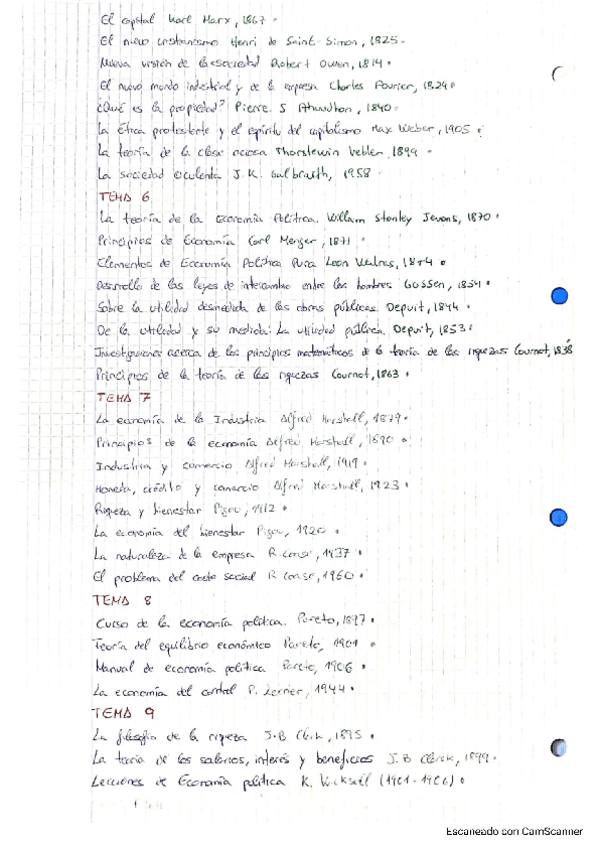 El capital Karl Marx, 1867
El nuevo cristianismo Henri de Saint-Simon, 1825.
Nueva visión de la sociedad Robert Owen, 1814.
El nuevo mondo industrial y de la empresa Charles Fourier, 1824.
¿Qué es la propiedad? Pierre. S 1840.
La Ética protestante y el espíritu del capitalismo Max Weber, 1905
La teoría de la clase ociosa 1899
La sociedad J. K. Galbraith, 1958
TEMA 6
La teoría de la Economía Política. William Stanley Jevons, 1870.
Principios de Economía Carl Menger, 1871
Elementos de Economía Política Pura Leon Walras, 1874.
Desarrollo de las leyes de intercambio entre los hombres Gossen, 1854.
Sobre la utilidad de las obras públicas. Depuit, 1844.
De la utilidad y su medida: La utilidad pública. Depuit, 1853.
Investigaciones acerca de los principios matemáticos de la teoría de las riquezas Cournot, 1838
Principios de la teoría de las riquezas Cournot, 1863.
TEMA 7
La economía de la Industria Alfred Marshall, 1879.
Principios de la economía Alfred Marshall, 1890.
Industria y comercio Alfred Marshall, 1919.
Moneda, crédito y comercio Alfred Marshall, 1923.
Riqueza y bienestar Pigou, 1912
La economía del bienestar Pigou, 1920.
La naturaleza de la empresa R. Coase, 1937.
El problema del coste social R Coase, 1960.
TEMA 8
Curso de la economía política. Pareto, 1897.
Teoría del equilibrio económico Pareto, 1901.
Manual de economía política Pareto, 1906.
La economía del control P. Lerner, 1944.
TEMA 9
La filosofía de la riqueza J.B Clark, 1895.
La teoría de los salarios, interés y beneficios J.B Clark, 1899.
Lecciones de Economía política K. Wicksell (1901-1906).
Escaneado con CamScanner